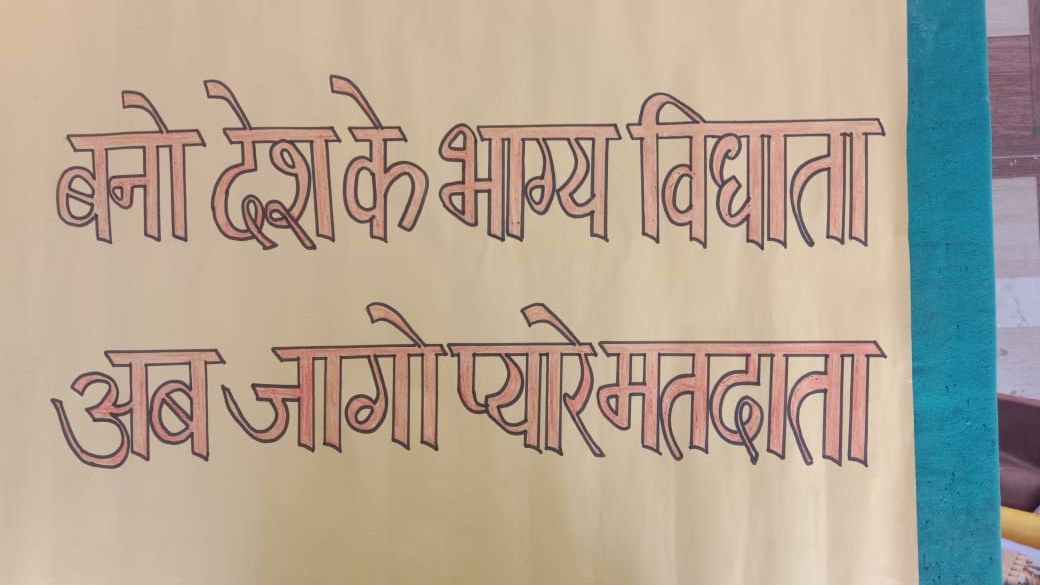 बनो देश के भाग्य विधाता
अब जागो प्यारे मतदाता